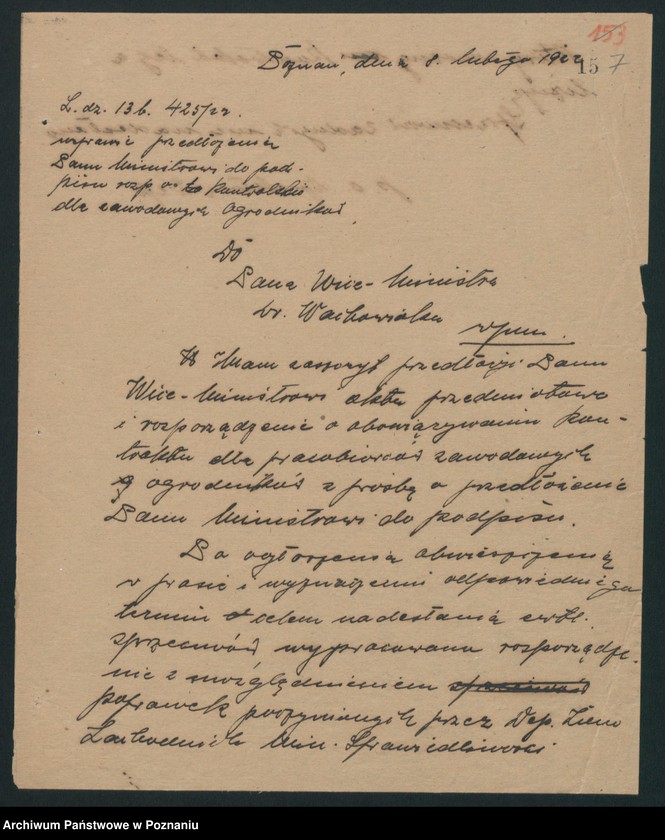 153
Poznań, dnia 8. lutego 1922
157
L. dz. 13b. 425/22.
wsprawie przedłożenia
Panu Ministrowi do pod-
pisu rozp. o kontrakcie
dla zawodowych ogrodników
Do
Pana Wice-Ministra
Dr. Wachowiaka
w/m.
Mam zaszczyt przedłożyć Panu
Wice-Ministrowi akta przedmiotowe
i rozporządzenie o obowiązywaniu kon-
traktu dla pracobiorców zawodowych
ogrodników z prośbą o przedłożenie
Panu Ministrowi do podpisu.
Po ogłoszeniu obwieszczenia
w prasie i wyznaczeniu odpowiedniego
terminu celem nadesłania ewtl.
sprzeciwów wypracowano rozporządze-
nie z uwzględnieniem
poprawek poczynionych przez Dep. Ziem
Zachodnich Min. Sprawiedliwości
Archiwum Państwowe w Poznaniu